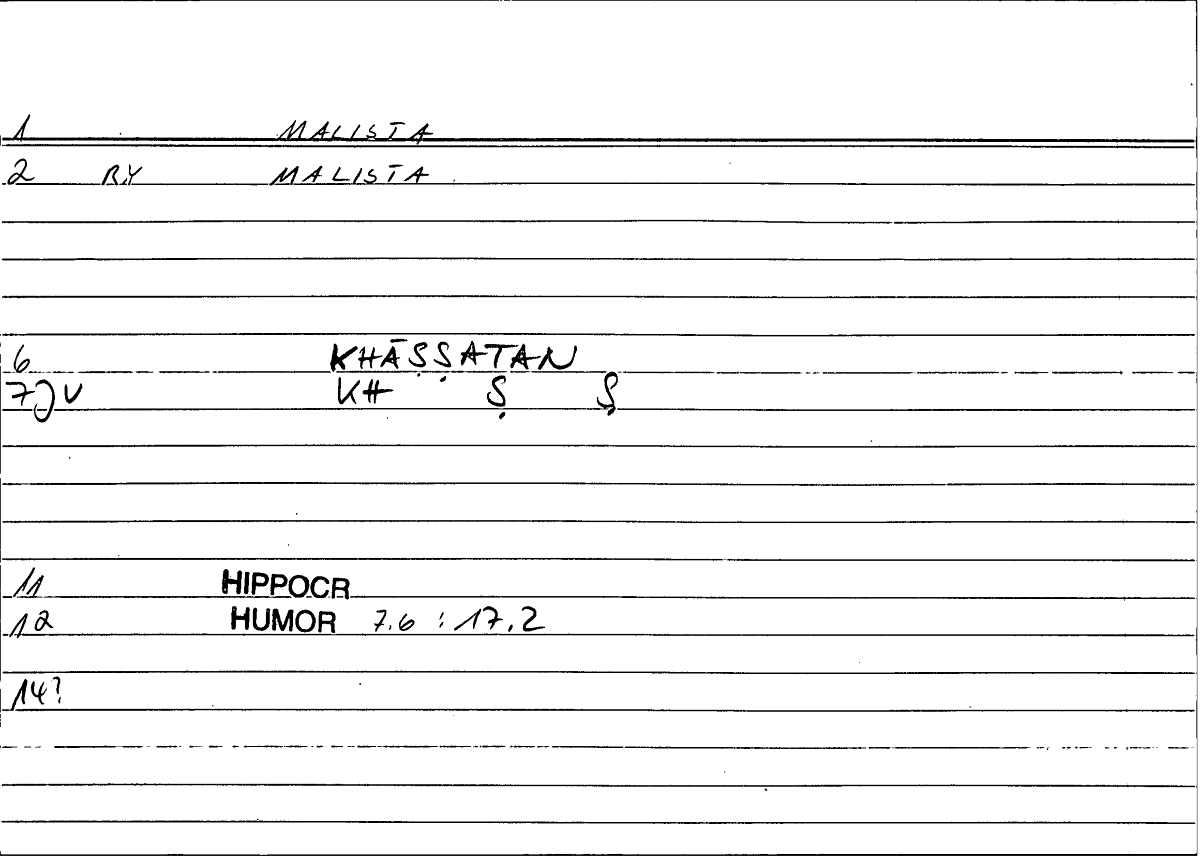 1 MALISTA
2 RY MALISTA
6 KHĀṢṢATAN
7 V KH Ṣ Ṣ
11 HIPPOCR
12 HUMOR 7.6 : 17.2
14?